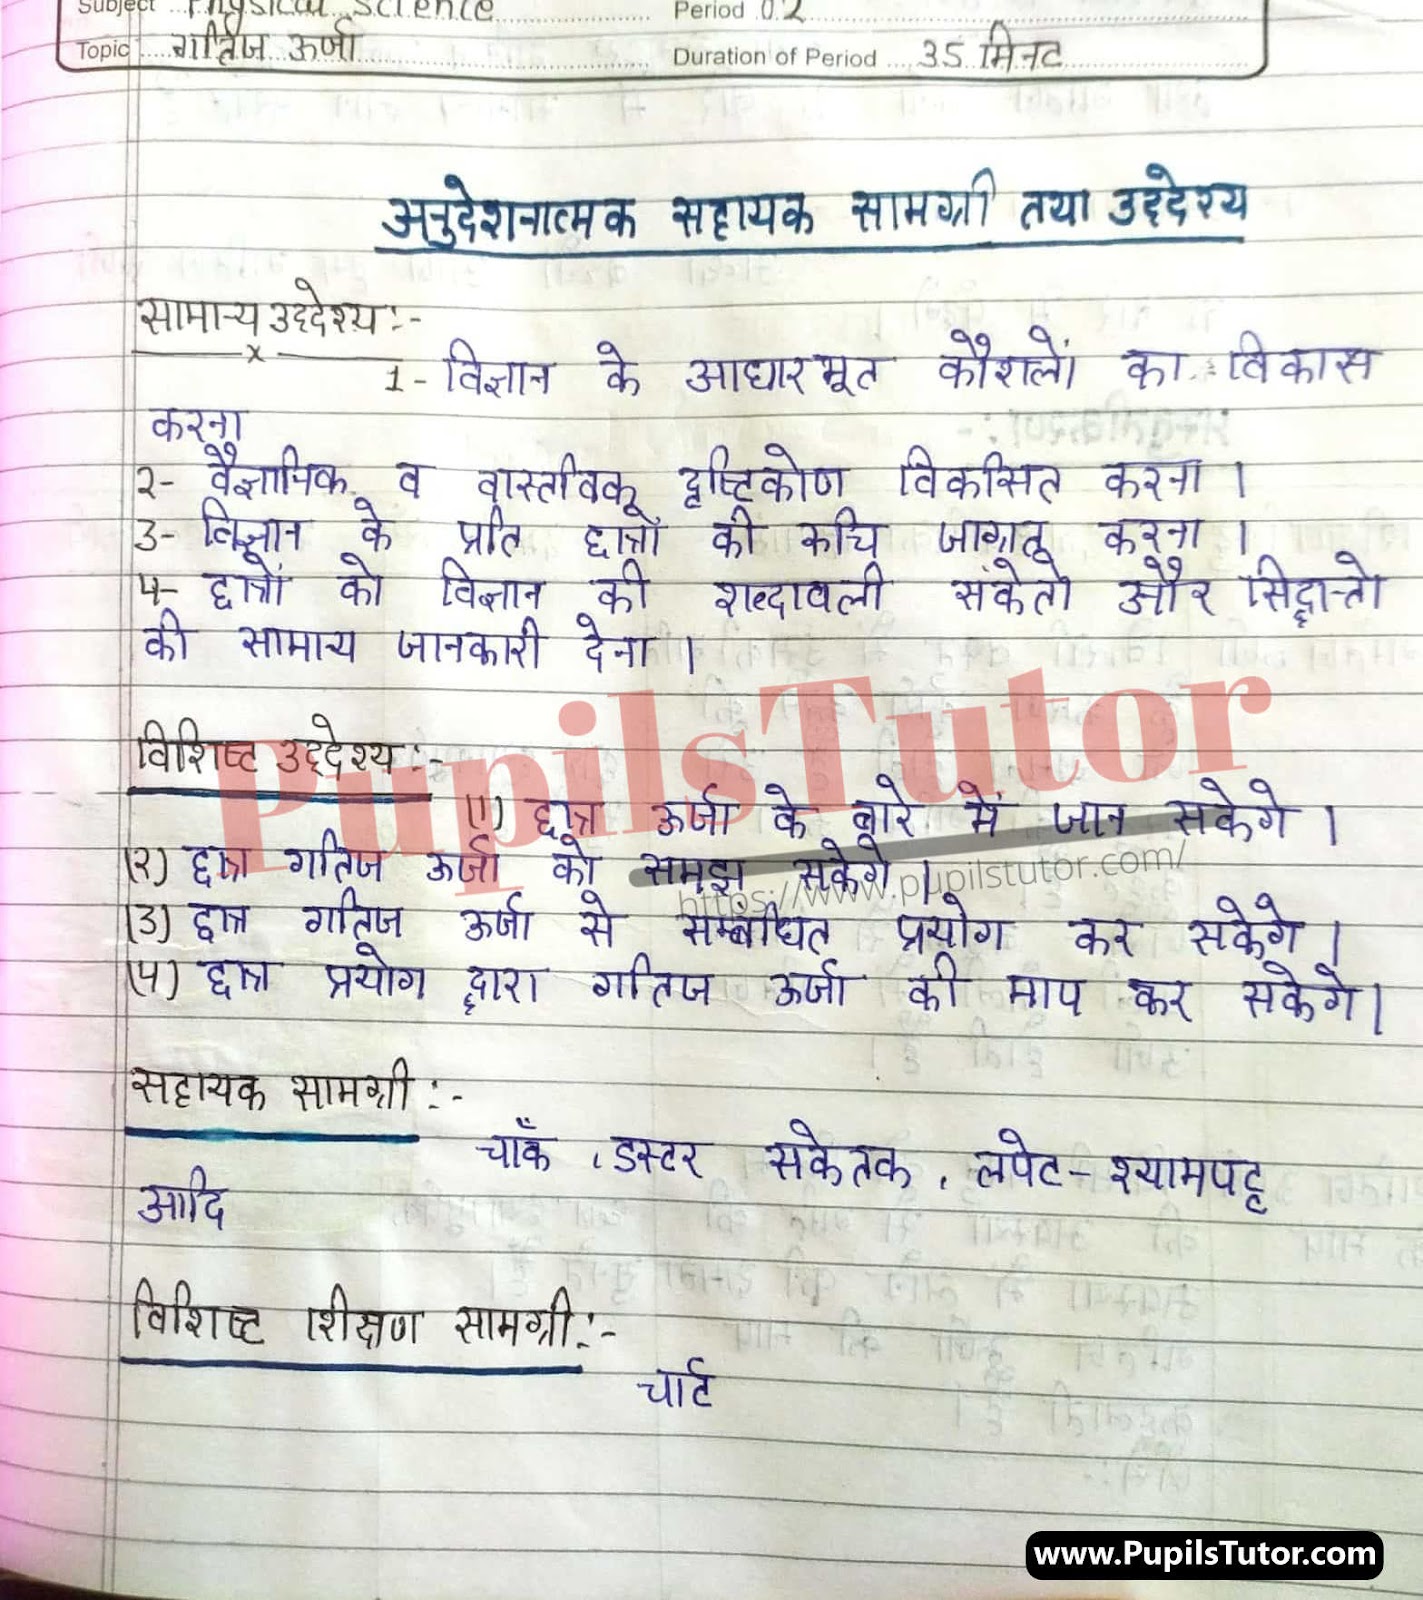 Subject Physical Science Period 02
Topic गतिज ऊर्जा Duration of Period 35 मिनट
अनुदेशनात्मक सहायक सामग्री तथा उद्देश्य
सामान्य उद्देश्य :-
1- विज्ञान के आधारभूत कौशलों का विकास
करना
2- वैज्ञानिक व वास्तविक दृष्टिकोण विकसित करना ।
3- विज्ञान के प्रति छात्रों की रूचि जाग्रत करना ।
4- छात्रों को विज्ञान की शब्दावली संकेतो और सिद्धान्तो
की सामान्य जानकारी देना ।
विशिष्ट उद्देश्य :-
(1) छात्र ऊर्जा के बारे में जान सकेगे ।
(2) छात्र गतिज ऊर्जा को समझ सकेगे ।
(3) छात्र गतिज ऊर्जा से सम्बंधित प्रयोग कर सकेगे ।
(4) छात्र प्रयोग द्वारा गतिज ऊर्जा की माप कर सकेगे।
सहायक सामग्री :-
चाँक , डस्टर सकेतक , लपेट-श्यामपट्ट
आदि
विशिष्ट शिक्षण सामग्री :-
चार्ट
PupilsTutor
https://www.pupilstutor.com/
www.PupilsTutor.com